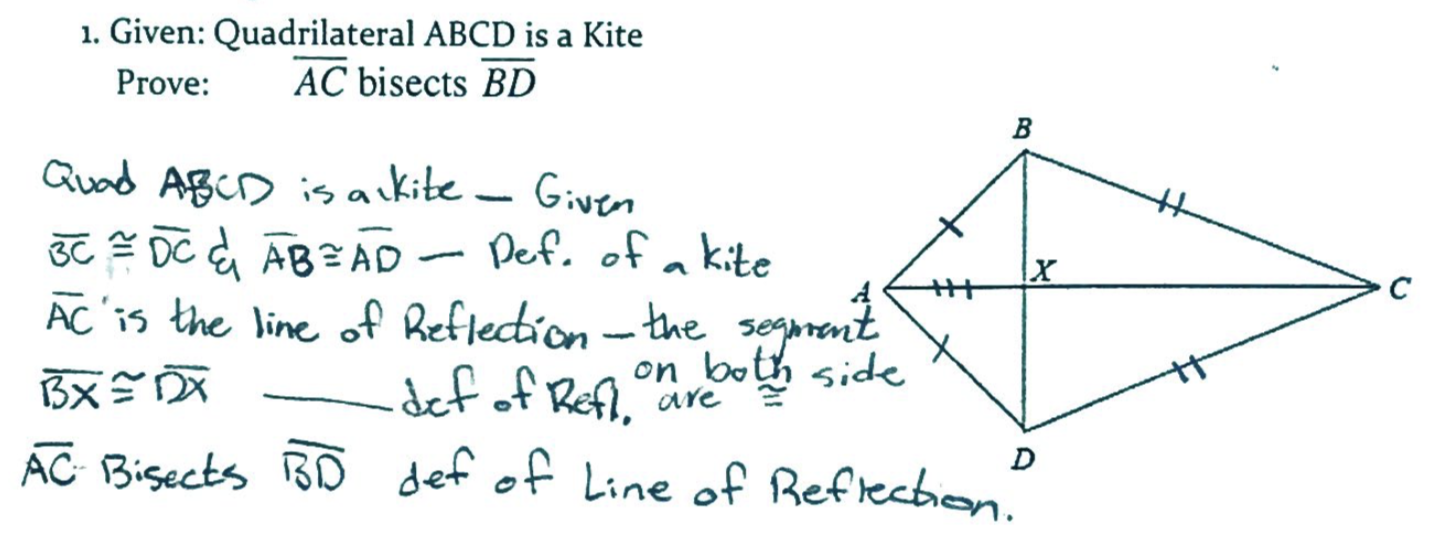 1. Given: Quadrilateral ABCD is a Kite
Prove: AC bisects BD
Quad ABCD is a kite — Given
BC ≅ DC & AB ≅ AD — Def. of a kite
AC is the line of Reflection — the segment
on both side
are ≅
BX ≅ DX — def of Refl.
AC Bisects BD def of Line of Reflection.
B
A
X
C
D